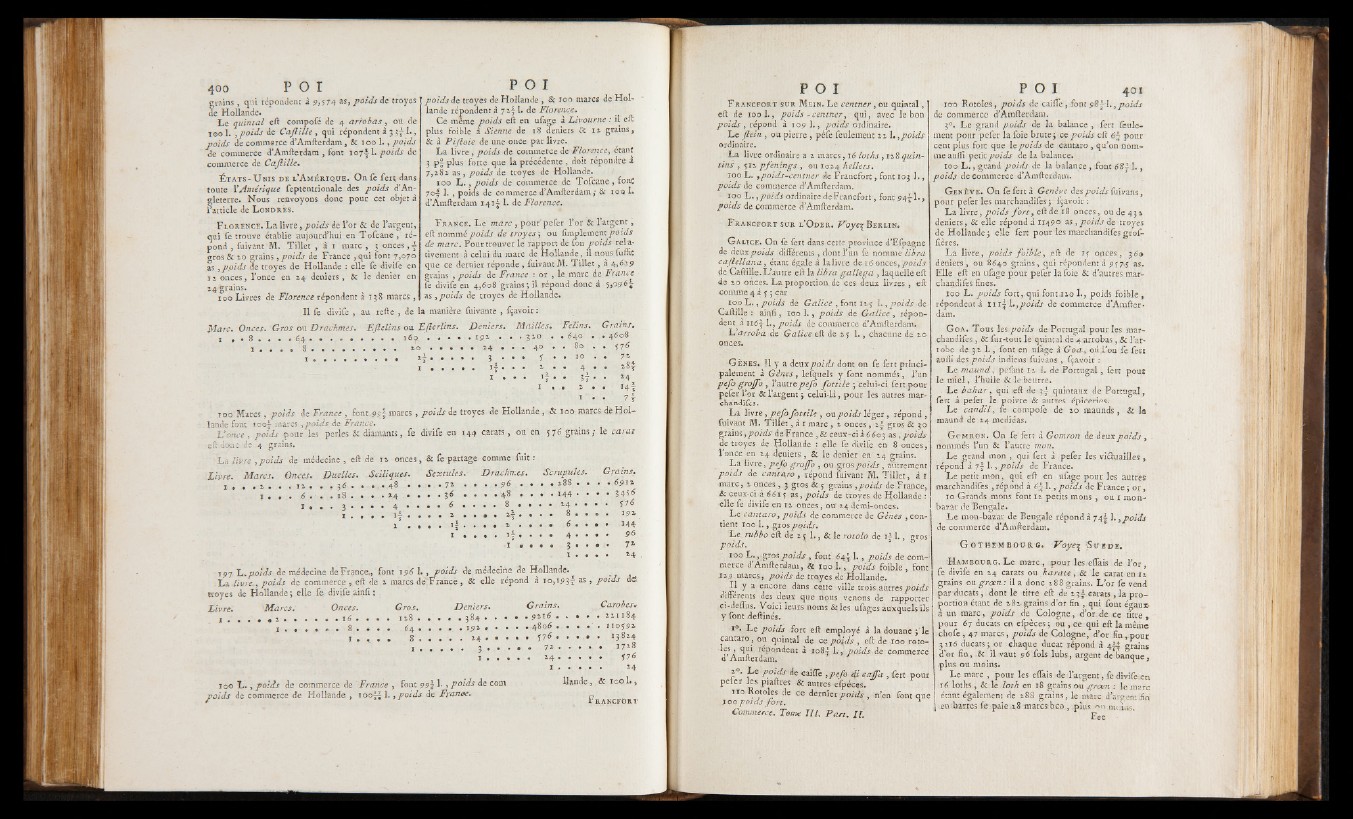 400 POI POI
grains, qui répondent à 9,574 as, poids de troyes
de Hollande.
Le quintal est composé de 4 arrobas, ou de
100 l., poids de Castille, qui répondent à
poids de commerce d'Amsterdam, & 100 l., poids
de commerce d'Amsterdam, font 107 l. poids de
commerce de Castille.
ÉTATS-UNIS DE L'AMÉRIQUE. On se sert dans
toute l'Amérique septentrionale des poids d'An-
gleterre. Nous renvoyons donc pour cet objet à
l'article de LONDRES.
FLORENCE. La livre, poids de l'or & de l'argent,
qui se trouve établie aujourd'hui en Toscane, ré-
pond, suivant M. Tillet, à 1 marc, 3 onces,
gros & 20 grains, poids de France, qui font 7,070
as, poids de troyes de Hollande : elle se divise en
12 onces, l'once en 24 deniers, & le denier en
24 grains.
100 Livres de Florence répondent à 138 marcs,
poids de troyes de Hollande, & 100 marcs de Hol-
lande répondent à 72 l. de Florence.
Ce même poids est en usage à Livourne : il est
plus foible à Sienne de 18 deniers & 12 grains,
& à Pistoie de une once par livre.
La livre, poids de commerce de Florence, étant
3 p° plus forte que la précédente, doit répondre à
7,282 as, poids de troyes de Hollande.
100 L., poids de commerce de Toscane, font
70 l., poids de commerce d'Amsterdam; & 100 l.
d'Amsterdam 141 l. de Florence.
FRANCE. Le marc, pour peser l'or & l'argent,
est nommé poids de troyes, ou simplement poids
de marc. Pour trouver le rapport de son poids rela-
tivement à celui du marc de Hollande, il nous suffit
que ce dernier réponde, suivant M. Tillet, à 4,639
grains, poids de France : or, le marc de France
se divise en 4,608 grains; il répond donc à 5,096
as, poids de troyes de Hollande.
Il se divise, au reste, de la manière suivante, sçavoir :
Marc. Onces. Gros ou Drachmes. Estelins ou Esterlins. Deniers. Mailles. Felins. Grains.
1 . . 8 . . . . 64 . . . . . . . . . 160 . . . . . . 192 . . . 320 . . 640 . . 4608
1 . . . . 8 . . . . . . . . . 20 . . . . . . 24 . . . 40 . . 80 . . 576
1 . . . . . . . . . 2½ . . . . . 3 . . . 5 . . 10 . . 72
1 . . . . . 1⅕ . . . 2 . . 4 . . 28⅘
1 . . . 1⅔ . . 3⅓ . . 24
1 . . 2 . . 14⅖
1 . . 7⅕
100 Marcs, poids de France, font marcs, poids de troyes de Hollande, & 100 marcs de Hol-
lande font marcs, poids de France.
L'once, poids pour les perles & diamants, se divise en 144 carats, ou en 576 grains; le carat
est donc de 4 grains.
La livre, poids de médecine, est de 12 onces, & se partage comme suit :
Livre. Marcs. Onces. Duelles. Sciliques. Sextules. Drachmes. Scrupules. Grains.
1 . . . 2 . . . 12 . . . 36 . . . . 48 . . . . 72 . . . . 96 . . . . 288 . . . . 6912
1 . . . 6 . . . 18 . . . . 24 . . . . 36 . . . . 48 . . . . 144 . . . . 3456
1 . . . 3 . . . . 4 . . . . 6 . . . . 8 . . . . 24 . . . . 576
1 . . . . 1⅓ . . . . 2 . . . . 2⅔ . . . . 8 . . . . 192
1 . . . . 1½ . . . . 2 . . . . 6 . . . . 144
1 . . . . 1⅓ . . . . 4 . . . . 96
1 . . . . 3 . . . . 72
1 . . . . 24
197 L. poids de médecine de France, font 196 l., poids de médecine de Hollande.
La livre, poids de commerce, est de 2 marcs de France, & elle répond à 10,193 as, poids de
troyes de Hollande; elle se divise ainsi :
Livre. Marcs. Onces. Gros. Deniers. Grains. Carobes.
1 . . . . . 2 . . . . . 16 . . . . . 128 . . . . . 384 . . . . . 9216 . . . . . 221184
1 . . . . . 8 . . . . . 64 . . . . . 192 . . . . . 4806 . . . . . 110592
1 . . . . . 8 . . . . . 24 . . . . . 576 . . . . . 13824
1 . . . . . 3 . . . . . 72 . . . . . 1728
1 . . . . . 24 . . . . . 576
1 . . . . . 24
100 L., poids de commerce de France, font 99 l., poids de com llande, & 100 l.,
poids de commerce de Hollande, l., poids de France.
FRANCFORT
POI POI 401
FRANCFORT SUR MEIN. Le centner, ou quintal,
est de 100 l., poids-centner, qui, avec le bon
poids, répond à 109 l., poids ordinaire.
Le stein, ou pierre, pèse seulement 22 l., poids
ordinaire.
La livre ordinaire a 2 marcs, 16 loths, 128 quin-
sins, 512 pfenings, ou 1024 hellers.
100 L., poids-centner de Francfort, font 103 l.,
poids de commerce d'Amsterdam.
100 L., poids ordinaire de Francfort, font 94 l.,
poids de commerce d'Amsterdam.
FRANCFORT SUR L'ODER. Voyez BERLIN.
GALICE. On se sert dans cette province d'Espagne
de deux poids différents, dont l'un se nomme libra
castellana, étant égale à la livre de 16 onces, poids
de Castille. L'autre est la libra gallega, laquelle est
de 20 onces. La proportion de ces deux livres, est
comme 4 à 5; car
100 L., poids de Galice, font 125 l., poids de
Castille : ainsi, 100 l., poids de Galice, répon-
dent à 116 l., poids de commerce d'Amsterdam.
L'arroba de Galice est de 25 l., chacune de 20
onces.
GÈNES. Il y a deux poids dont on se sert princi-
palement à Gènes, lesquels y sont nommés, l'un
peso grosso, l'autre peso sottile; celui-ci sert pour
peser l'or & l'argent; celui-là, pour les autres mar-
chandises.
La livre, peso sottile, ou poids léger, répond,
suivant M. Tillet, à 1 marc, 2 onces, 2½ gros & 30
grains, poids de France, & ceux-ci à 6603 as, poids
de troyes de Hollande : elle se divise en 8 onces,
l'once en 24 deniers, & le denier en 24 grains.
La livre, peso grosso, ou gros poids, autrement
poids de cantaro, répond suivant M. Tillet, à 1
marc, 2 onces, 3 gros & 5 grains, poids de France,
& ceux-ci à 6615 as, poids de troyes de Hollande :
elle se divise en 12 onces, ou 24 demi-onces.
Le cantaro, poids de commerce de Gènes, con-
tient 100 l., gros poids.
Le rubbo est de 25 l., & le rotolo de 1½ l., gros
poids.
100 L., gros poids, font 64 l., poids de com-
merce d'Amsterdam, & 100 l., poids foible, font
129 marcs, poids de troyes de Hollande.
Il y a encore dans cette ville trois autres poids
différents des deux que nous venons de rapporter
ci-dessus. Voici leurs noms & les usages auxquels ils
y sont destinés.
1°. Le poids fort est employé à la douane; le
cantaro, ou quintal de ce poids, est de 100 roto-
les, qui répondent à 108 l., poids de commerce
d'Amsterdam.
2°. Le poids de caisse, peso di cassa, sert pour
peser les piastres & autres espèces.
110 Rotoles de ce dernier poids, n'en font que
100 poids fort.
Commerce. Tome III. Part. II.
100 Rotoles, poids de caisse, font 98 l., poids
de commerce d'Amsterdam.
3°. Le grand poids de la balance, sert seule-
ment pour peser la soie brute; ce poids est pour
cent plus fort que le poids de cantaro, qu'on nom-
me aussi petit poids de la balance.
100 L., grand poids de la balance, font 68 l.,
poids de commerce d'Amsterdam.
GENÈVE. On se sert à Genève des poids suivans,
pour peser les marchandises; sçavoir :
La livre, poids fort, est de 18 onces, ou de 432
deniers, & elle répond à 11490 as, poids de troyes
de Hollande; elle sert pour les marchandises gros-
sières.
La livre, poids foible, est de 15 onces, 360
deniers, ou 8640 grains, qui répondent à 9575 as.
Elle est en usage pour peser la soie & d'autres mar-
chandises fines.
100 L. poids fort, qui font 120 l., poids foible,
répondent à 111 l., poids de commerce d'Amster-
dam.
GOA. Tous les poids de Portugal pour les mar-
chandises, & sur-tout le quintal de 4 arrobas, & l'ar-
robe de 32 l., sont en usage à Goa, où l'on se sert
aussi des poids indiens suivans, sçavoir :
Le maund, pesant 12 l. de Portugal, sert pour
le miel, l'huile & le beurre.
Le bahar, qui est de 3½ quintaux de Portugal,
sert à peser le poivre & autres épiceries.
Le candil, se compose de 20 maunds, & le
maund de 24 medidas.
GOMRON. On se sert à Gomron de deux poids,
nommés l'un & l'autre mon.
Le grand mon, qui sert à peser les victuailles,
répond à 7 l., poids de France.
Le petit mon, qui est en usage pour les autres
marchandises, répond à 6 l., poids de France; or,
10 Grands mons font 12 petits mons, ou 1 mon-
bazar de Bengale.
Le mon-bazar de Bengale répond à 74 l., poids
de commerce d'Amsterdam.
GOTHEMBOURG. Voyez SUEDE.
HAMBOURG. Le marc, pour les essais de l'or,
se divise en 24 carats ou karate, & le carat en 12
grains ou græn : il a donc 288 grains. L'or se vend
par ducats, dont le titre est de 23½ carats, la pro-
portion étant de 282 grains d'or fin, qui sont égaux
à un marc, poids de Cologne, d'or de ce titre,
pour 67 ducats en espèces; ou, ce qui est la même
chose, 47 marcs, poids de Cologne, d'or fin, pour
3216 ducats; or chaque ducat répond à grains
d'or fin, & il vaut 96 sols lubs, argent de banque,
plus ou moins.
Le marc, pour les essais de l'argent, se divise en
16 loths, & le loth en 18 grains ou græn : le marc
étant également de 288 grains, le marc d'argent fin
en barres se paie 28 marcs bco, plus ou moins.
Eee